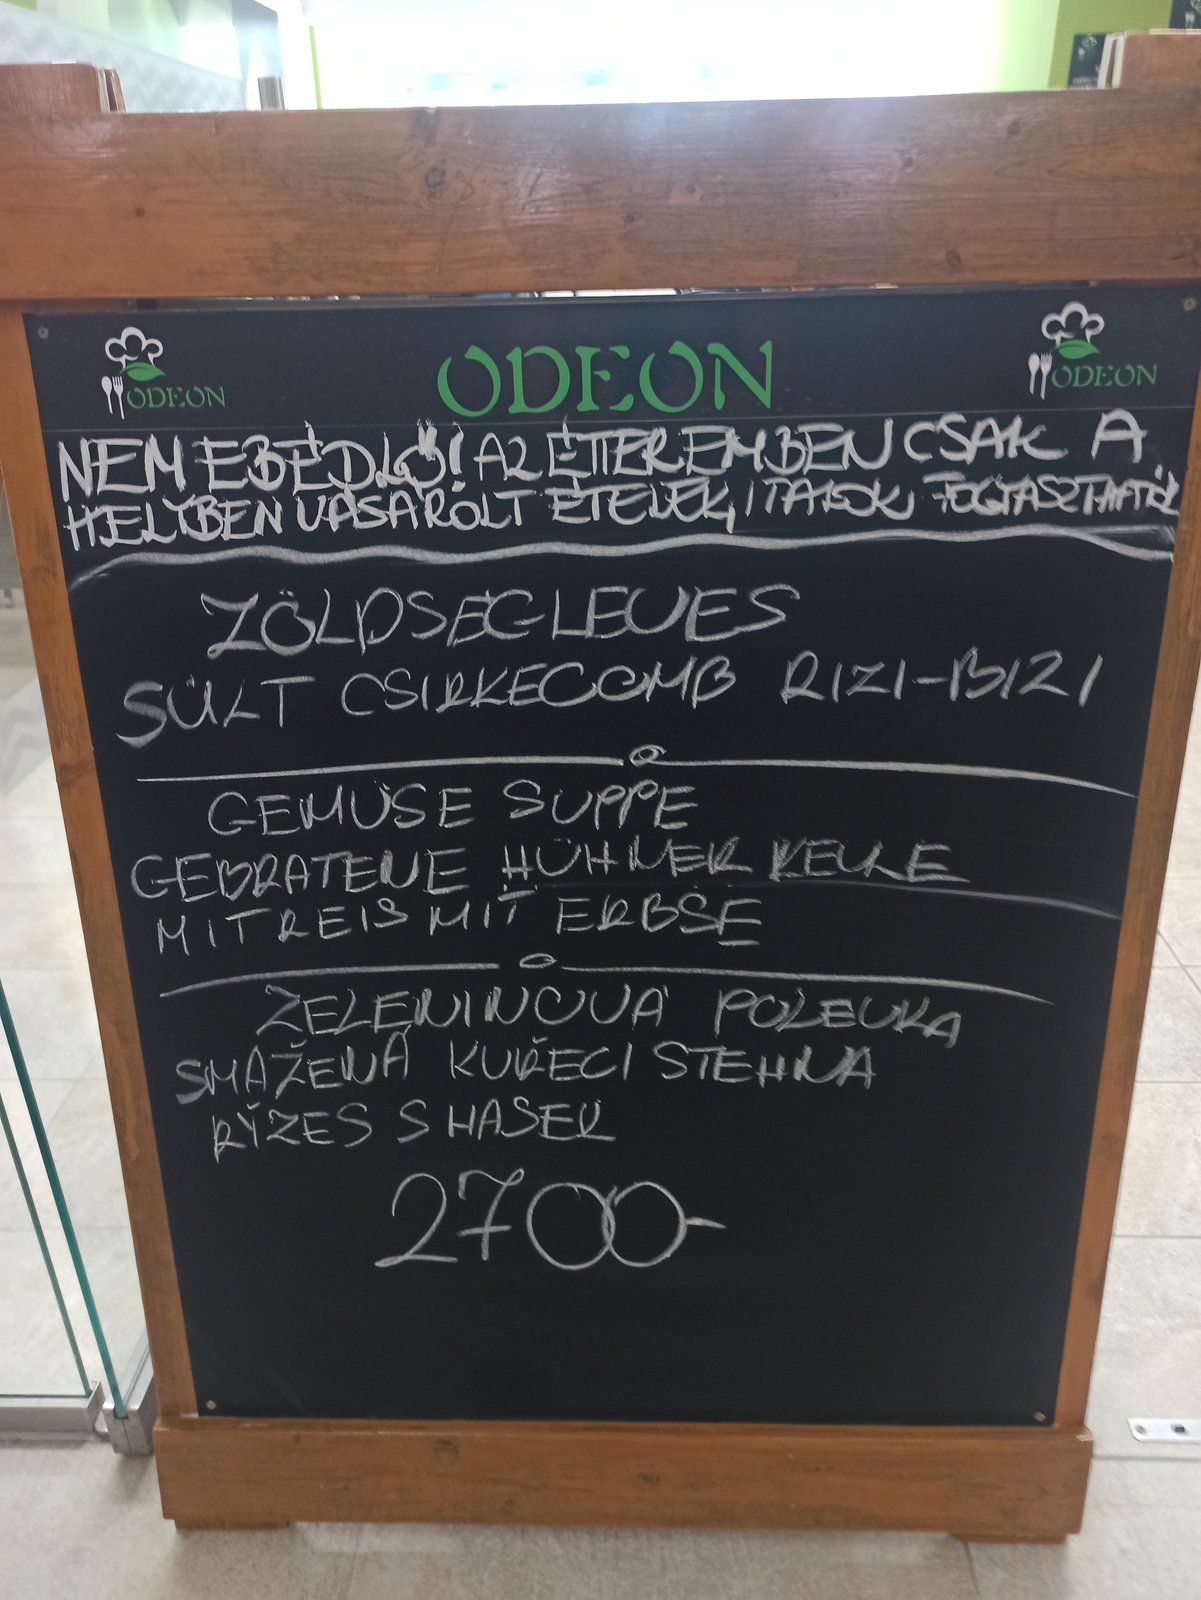 ODEON
ODEON
ODEON
NEM EBÉDLŐ! AZ ÉTTEREMBEN CSAK A
HELYBEN VÁSÁROLT ÉTELEK, ITALOK FOGYASZTHATÓK
ZÖLDSÉGLEVES
SÜLT CSIRKECOMB RIZI-BIZI
GEMÜSE SUPPE
GEBRATENE HÜHNER KEULE
MIT REIS MIT ERBSE
ZELENINOVÁ POLEVKA
SMAŽENÁ KUŘECI STEHNA
RÝZES S HASEK
2700-